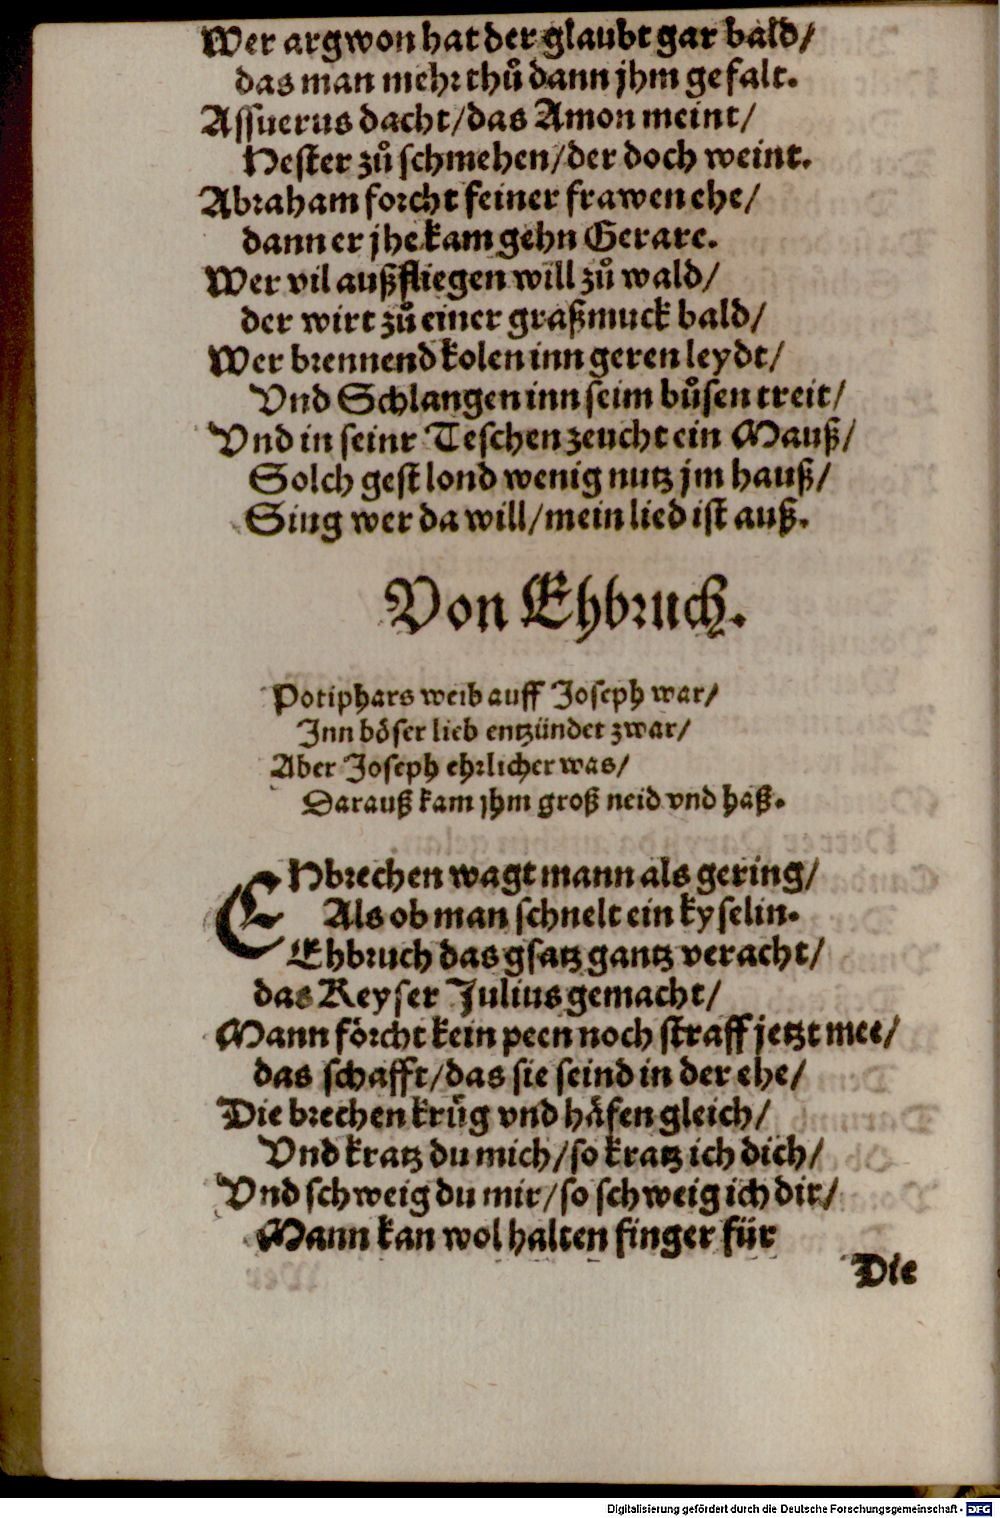 Wer argwon hat der glaubt gar bald/
das man mehr thuͦ dann jhm gefalt.
Assuerus dacht/das Amon meint/
Hester zuͦ schmehen/der doch weint.
Abraham forcht seiner frawen ehe/
dann er jhe kam gehn Gerare.
Wer vil außfliegen will zuͦ wald/
der wirt zuͦ einer graßmuck bald/
Wer brennend kolen inn geren leydt/
Vnd Schlangen inn seim buͦsen treit/
Vnd in seinr Teschen zeucht ein Mauß/
Solch gest lond wenig nutz jm hauß/
Sing wer da will/mein lied ist auß.
Von Ehbruch.
Potiphars weib auff Joseph war/
Inn boͤser lieb entzündet zwar/
Aber Joseph ehrlicher was/
Darauß kam jhm groß neid vnd haß.
EHbrechen wagt mann als gering/
Als ob man schnelt ein kyselin.
Ehbruch das gsatz gantz veracht/
das Keyser Julius gemacht/
Mann foͤrcht kein peen noch straff jetzt mee/
das schafft/das sie seind in der ehe/
Die brechen kruͤg vnd haͤfen gleich/
Vnd kratz du mich/so kratz ich dich/
Vnd schweig du mir/so schweig ich dir/
Mann kan wol halten finger für
Die
Digitalisierung gefördert durch die Deutsche Forschungsgemeinschaft - DFG